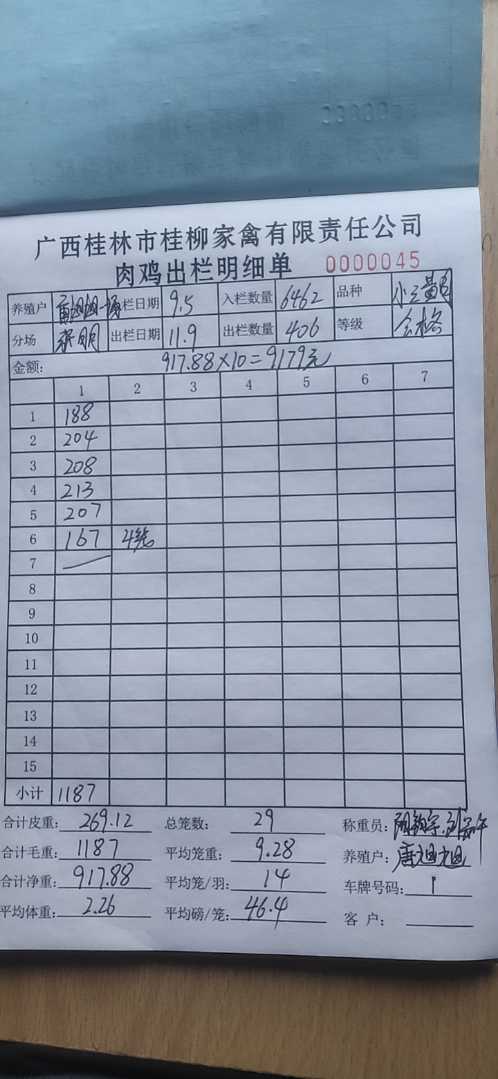 广西桂林市桂柳家禽有限责任公司
肉鸡出栏明细单 0000045
养殖户 入栏日期 9.5 入栏数量 6462 品种 小三黄
分场 出栏日期 11.9 出栏数量 406 等级 合格
金额: 917.88×10=9179元
1 2 3 4 5 6 7
1 188
2 204
3 208
4 213
5 207
6 167 4笼
7
8
9
10
11
12
13
14
15
小计 1187
合计皮重: 269.12 总笼数: 29 称重员:
合计毛重: 1187 平均笼重: 9.28 养殖户:
合计净重: 917.88 平均笼/羽: 14 车牌号码:
平均体重: 2.26 平均磅/笼: 46.4 客 户: